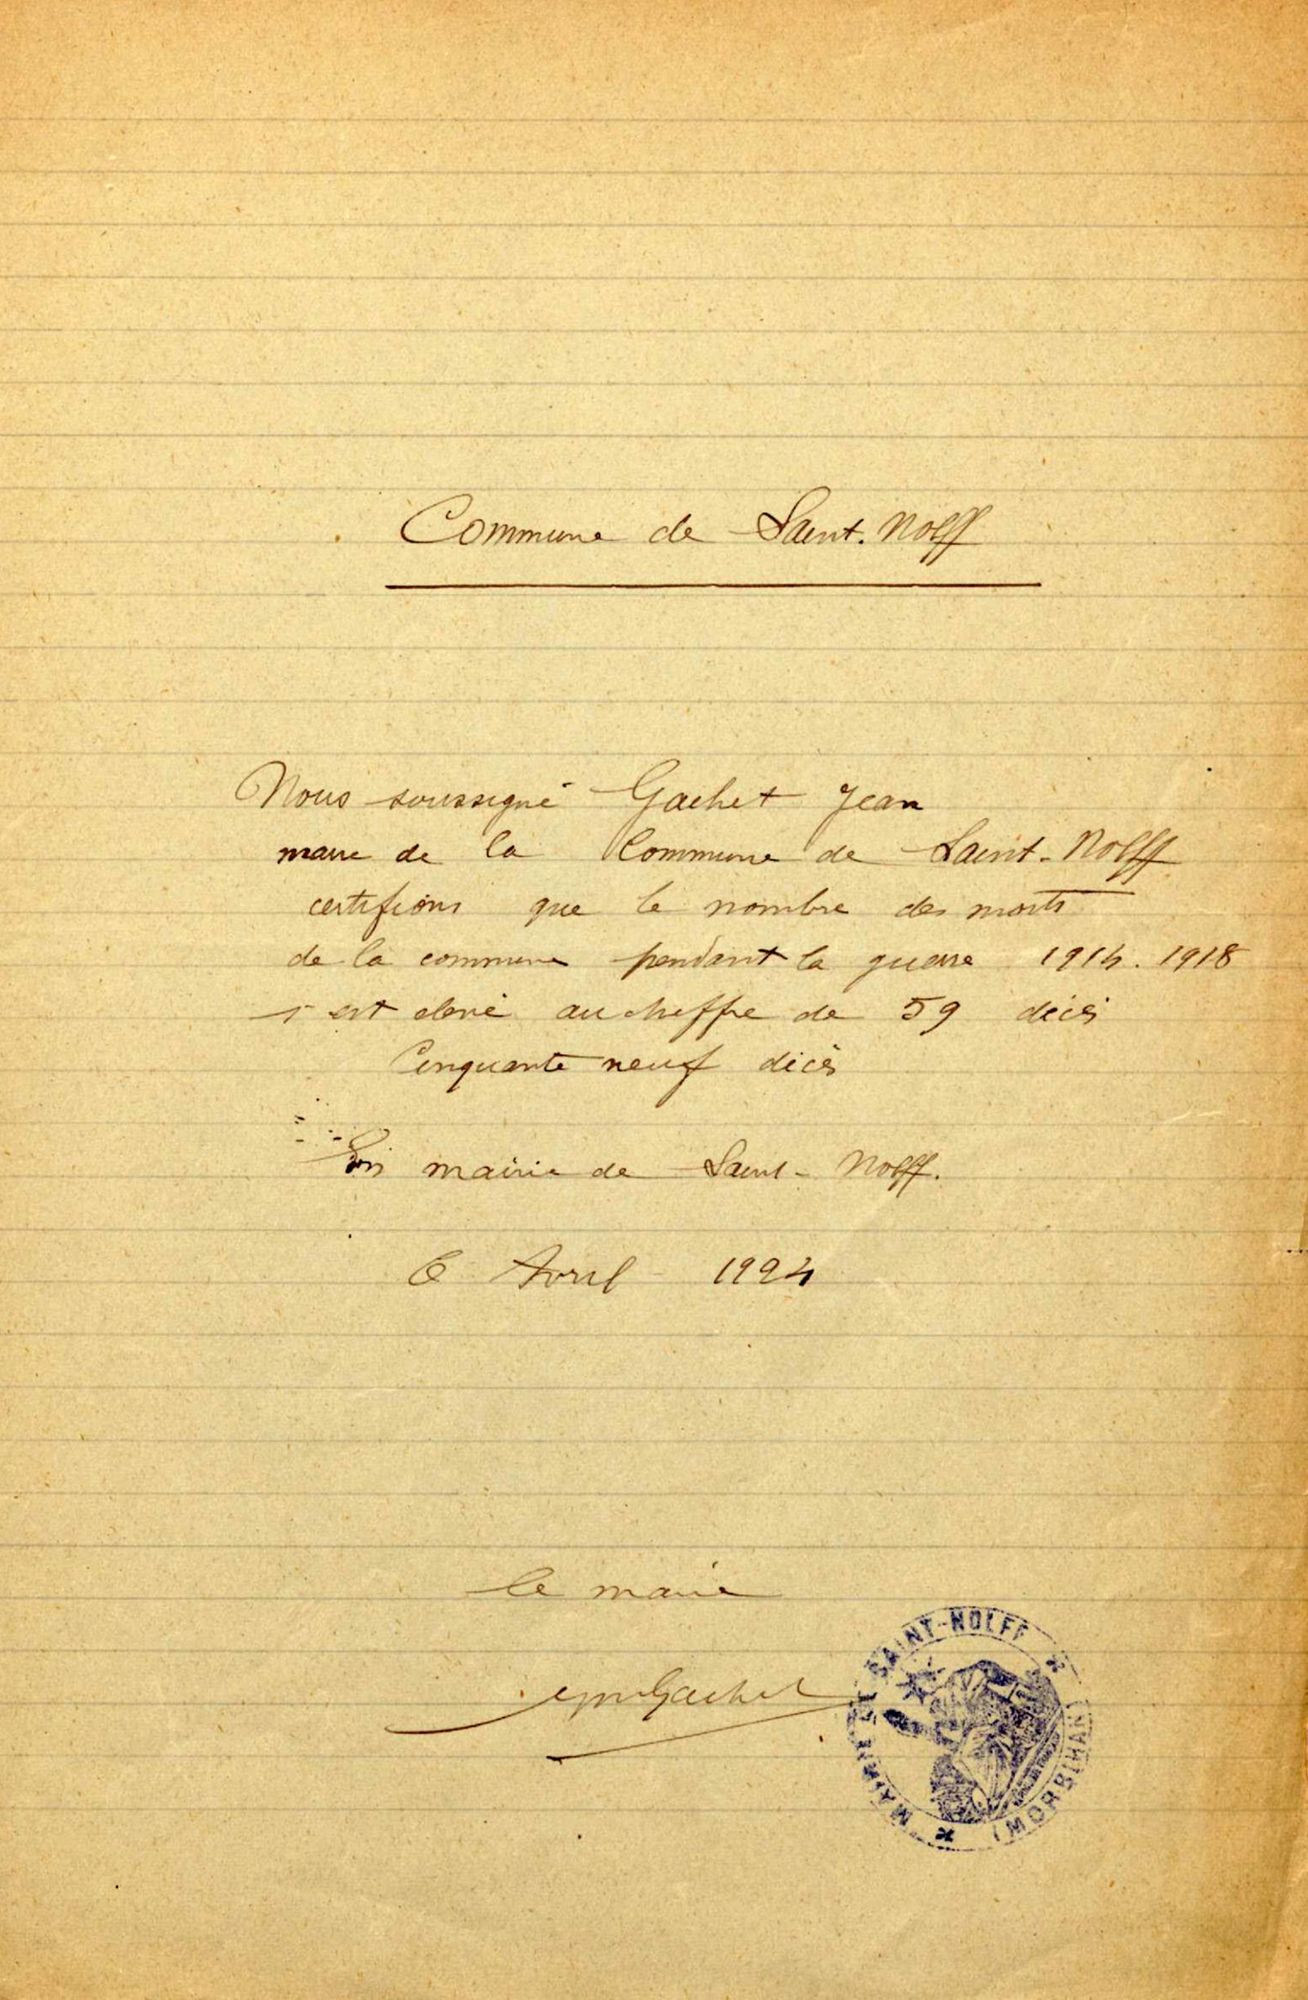 Commune de Saint-Nolff
Nous soussigné Gachet Jean
maire de la Commune de Saint-Nolff
certifions que le nombre des morts
de la commune pendant la guerre 1914-1918
s'est élevé au cheffre de 59 décès
Cinquante neuf décès
En mairie de Saint-Nolff.
6 Avril 1924
le maire
Gachet
MAIRIE DE SAINT-NOLFF
(MORBIHAN)